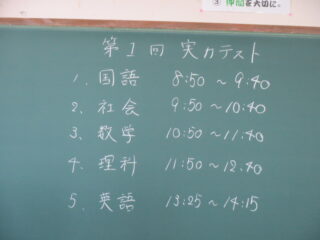 ③ 仲間を大切に。
第1回 実力テスト
1. 国語 8:50 ~ 9:40
2. 社会 9:50 ~ 10:40
3. 数学 10:50 ~ 11:40
4. 理科 11:50 ~ 12:40
5. 英語 13:25 ~ 14:15